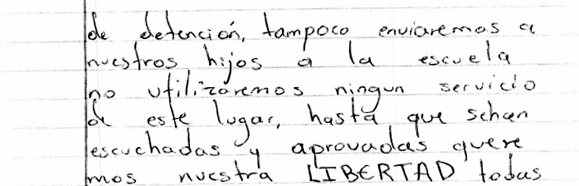 de detención, tampoco enviaremos a
nuestros hijos a la escuela
no utilizaremos ningun servicio
de este lugar, hasta que sehan
escuchadas y aprovadas quere
mos nuestra LIBERTAD todas